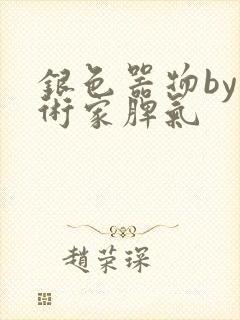 銀色器物by
術家脾氣
趙荣琛